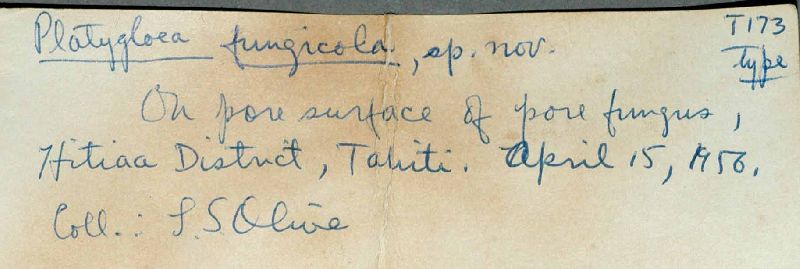 Platygloea fungicola, sp. nov.
T173
type
On pore surface of pore fungus,
Hitiaa District, Tahiti. April 15, 1956.
Coll.: L.S. Olive